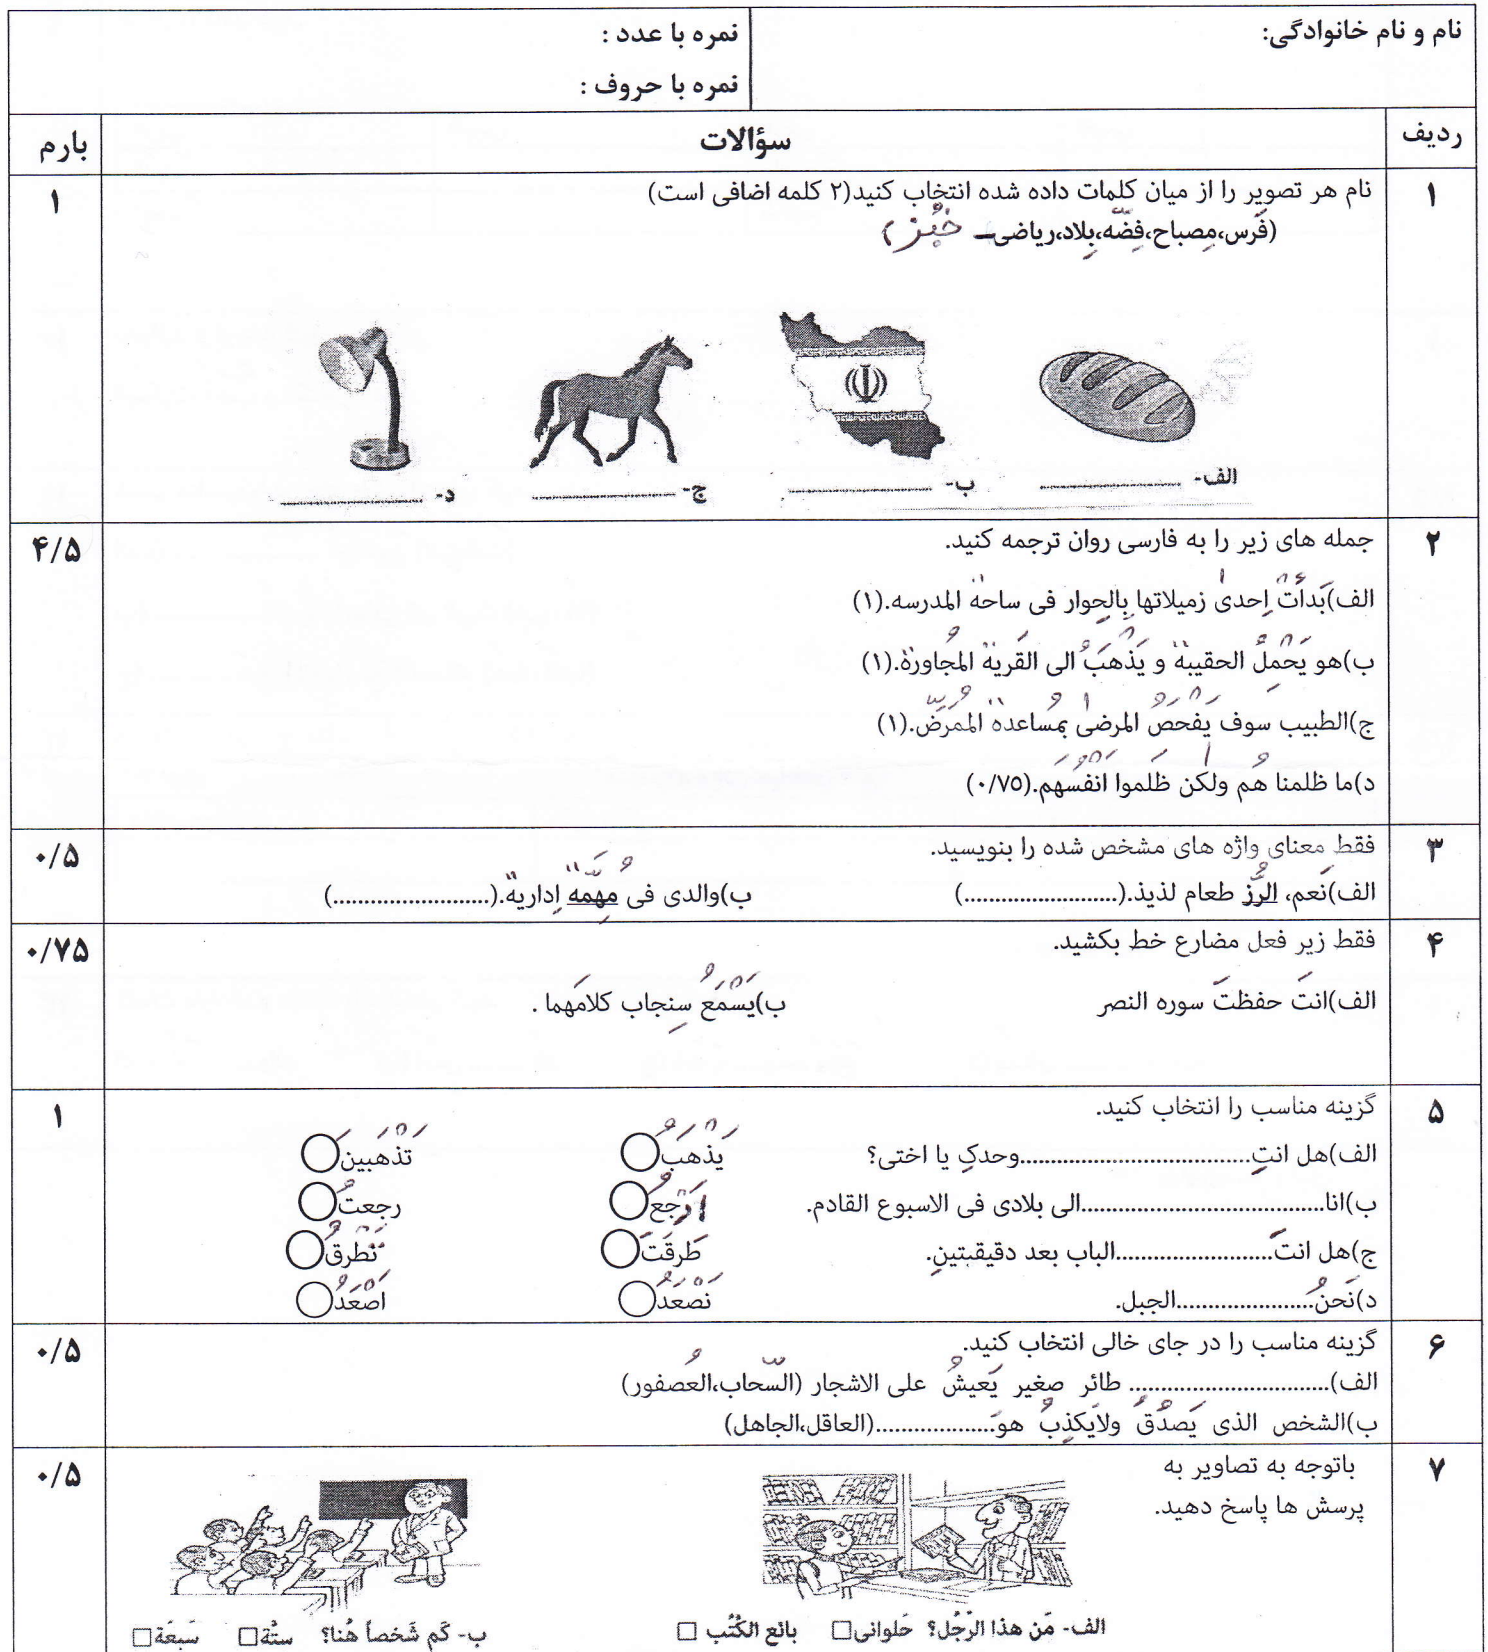 نام و نام خانوادگی:
نمره با عدد :
نمره با حروف :
ردیف سؤالات بارم
۱ نام هر تصویر را از میان کلمات داده شده انتخاب کنید(۲ کلمه اضافی است) ۱
(فَرس،مِصباح،فِضّه،بِلاد،ریاضی ــ خُبْز)
الف- ــــــــــ ب- ــــــــــ ج- ــــــــــ د- ــــــــــ
۲ جمله های زیر را به فارسی روان ترجمه کنید. ۴/۵
الف)بَدأَتْ اِحدیٰ زمیلاتها بِالحِوار فی ساحة المدرسه.(۱)
ب)هو یَحْمِلُ الحقیبة و یَذْهَبُ الی القَریة المُجاورة.(۱)
ج)الطبیب سوف یَفْحَصُ المرضیٰ بمُساعدة المُمَرِّض.(۱)
د)ما ظلمنا هُم ولٰکن ظَلَموا اَنْفُسَهم.(۰/۷۵)
۳ فقط معنای واژه های مشخص شده را بنویسید. ۰/۵
الف)نَعم، الرُّز طعام لذیذ.(.........................) ب)والدی فی مُهِمَّة اِداریة.(.........................)
۴ فقط زیر فعل مضارع خط بکشید. ۰/۷۵
الف)انتَ حفظتَ سوره النصر ب)یَسْمَعُ سِنجاب کلامَهما .
۵ گزینه مناسب را انتخاب کنید. ۱
الف)هل انتِ.....................................وحدکِ یا اختی؟ یَذْهَبُ تَذْهَبینَ
ب)انا.......................................الی بلادی فی الاسبوع القادم. اَرْجِعُ رجعتُ
ج)هل انتَ.........................الباب بعد دقیقیتینِ. طَرقَتَ نَطْرقُ
د)نَحنُ......................الجبل. نَصْعَدُ اَصْعَدُ
۶ گزینه مناسب را در جای خالی انتخاب کنید. ۰/۵
الف)................................ طائر صغیر یَعیشُ علی الاشجار (السَّحاب،العُصفور)
ب)الشخص الذی یَصدُقُ ولایَکذِبُ هوَ...................(العاقل،الجاهل)
۷ باتوجه به تصاویر به ۰/۵
پرسش ها پاسخ دهید.
الف- مَن هذا الرَّجُل؟ حَلوانی□ بائع الکُتُب □ ب- کَم شَخصاً هُنا؟ ستَّة□ سَبعَة□